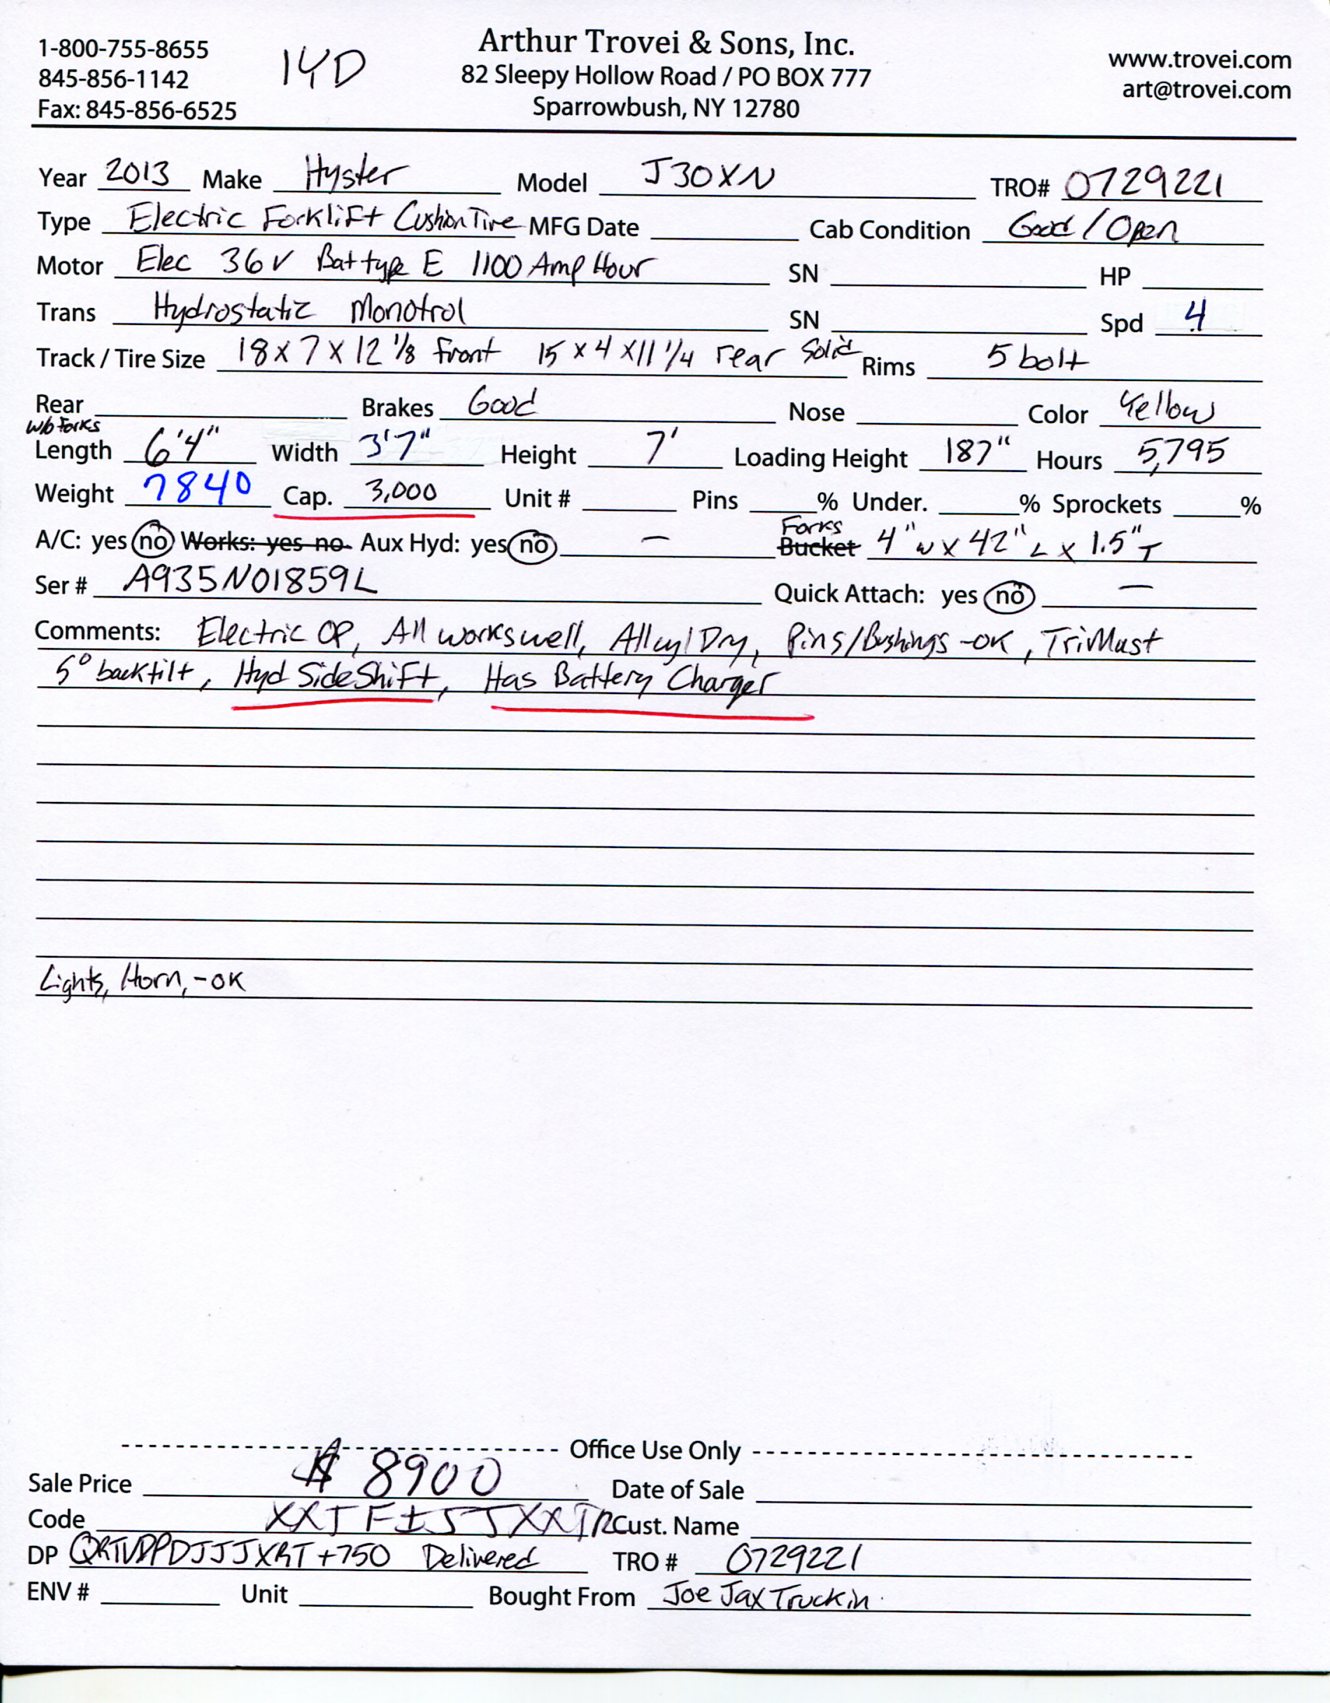 1-800-755-8655
845-856-1142
Fax: 845-856-6525
14D
Arthur Trovei & Sons, Inc.
82 Sleepy Hollow Road / PO BOX 777
Sparrowbush, NY 12780
www.trovei.com
art@trovei.com
Year 2013 Make Hyster Model J30XN TRO# 0729221
Type Electric Forklift Cushion Tire MFG Date Cab Condition Good / Open
Motor Elec 36V Bat type E 1100 Amp Hour SN HP
Trans Hydrostatic Monotrol SN Spd 4
Track / Tire Size 18 x 7 x 12 1/8 front 15 x 4 x 11 1/4 rear Solid Rims 5 bolt
Rear Brakes Good Nose Color Yellow
w/o Forks
Length 6'4" Width 3'7" Height 7' Loading Height 187" Hours 5,795
Weight 7840 Cap. 3,000 Unit # Pins % Under. % Sprockets %
A/C: yes no Works: yes no Aux Hyd: yes no — Forks Bucket 4" W x 42" L x 1.5" T
Ser # A935N01859L Quick Attach: yes no —
Comments: Electric OP, All works well, All cyl Dry, Pins/Bushings -OK, TriMast
5° backtilt, Hyd SideShift, Has Battery Charger
Lights, Horn, -OK
Office Use Only
Sale Price $ 8900 Date of Sale
Code Cust. Name
DP +750 Delivered TRO # 0729221
ENV # Unit Bought From Joe Jax Truckin